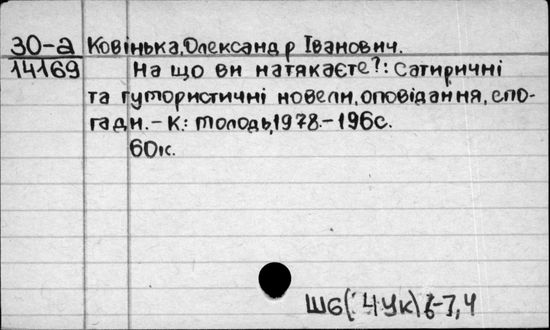 30-а Ковінька, Олександр Іванович.
14169 На що ви натякаєте?: Сатиричні
та гумористичні новели, оповідання, спо-
гади. - К.: Молодь, 1978. - 196с.
60к.
Ш6(4Ук)6-7,4